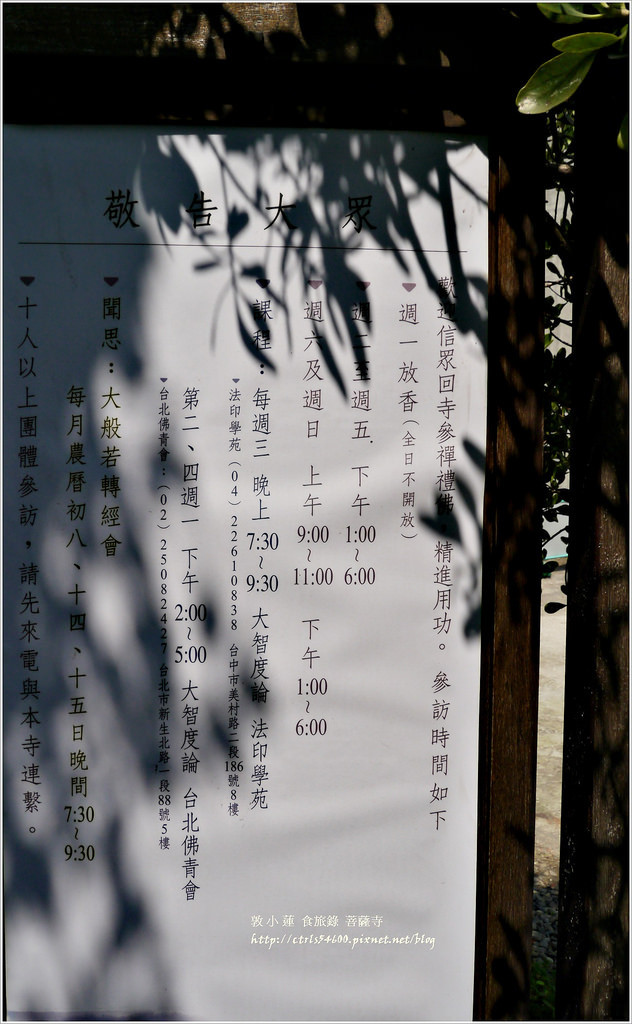 敬告大眾
歡迎信眾回寺參禪禮佛,精進用功。參訪時間如下
週一放香(全日不開放)
週二至週五. 下午 1:00~6:00
週六及週日 上午 9:00~11:00 下午 1:00~6:00
課程:每週三 晚上 7:30~9:30 大智度論 法印學苑
法印學苑(04)22610838 台中市美村路二段186號8樓
第二、四週一 下午 2:00~5:00 大智度論 台北佛青會
台北佛青會:(02)25082427 台北市新生北路一段88號5樓
聞思:大般若轉經會
每月農曆初八、十四、十五日晚間 7:30~9:30
十人以上團體參訪,請先來電與本寺連繫。
敦小蓮 食旅錄 菩薩寺
http://ctrls54600.pixnet.net/blog